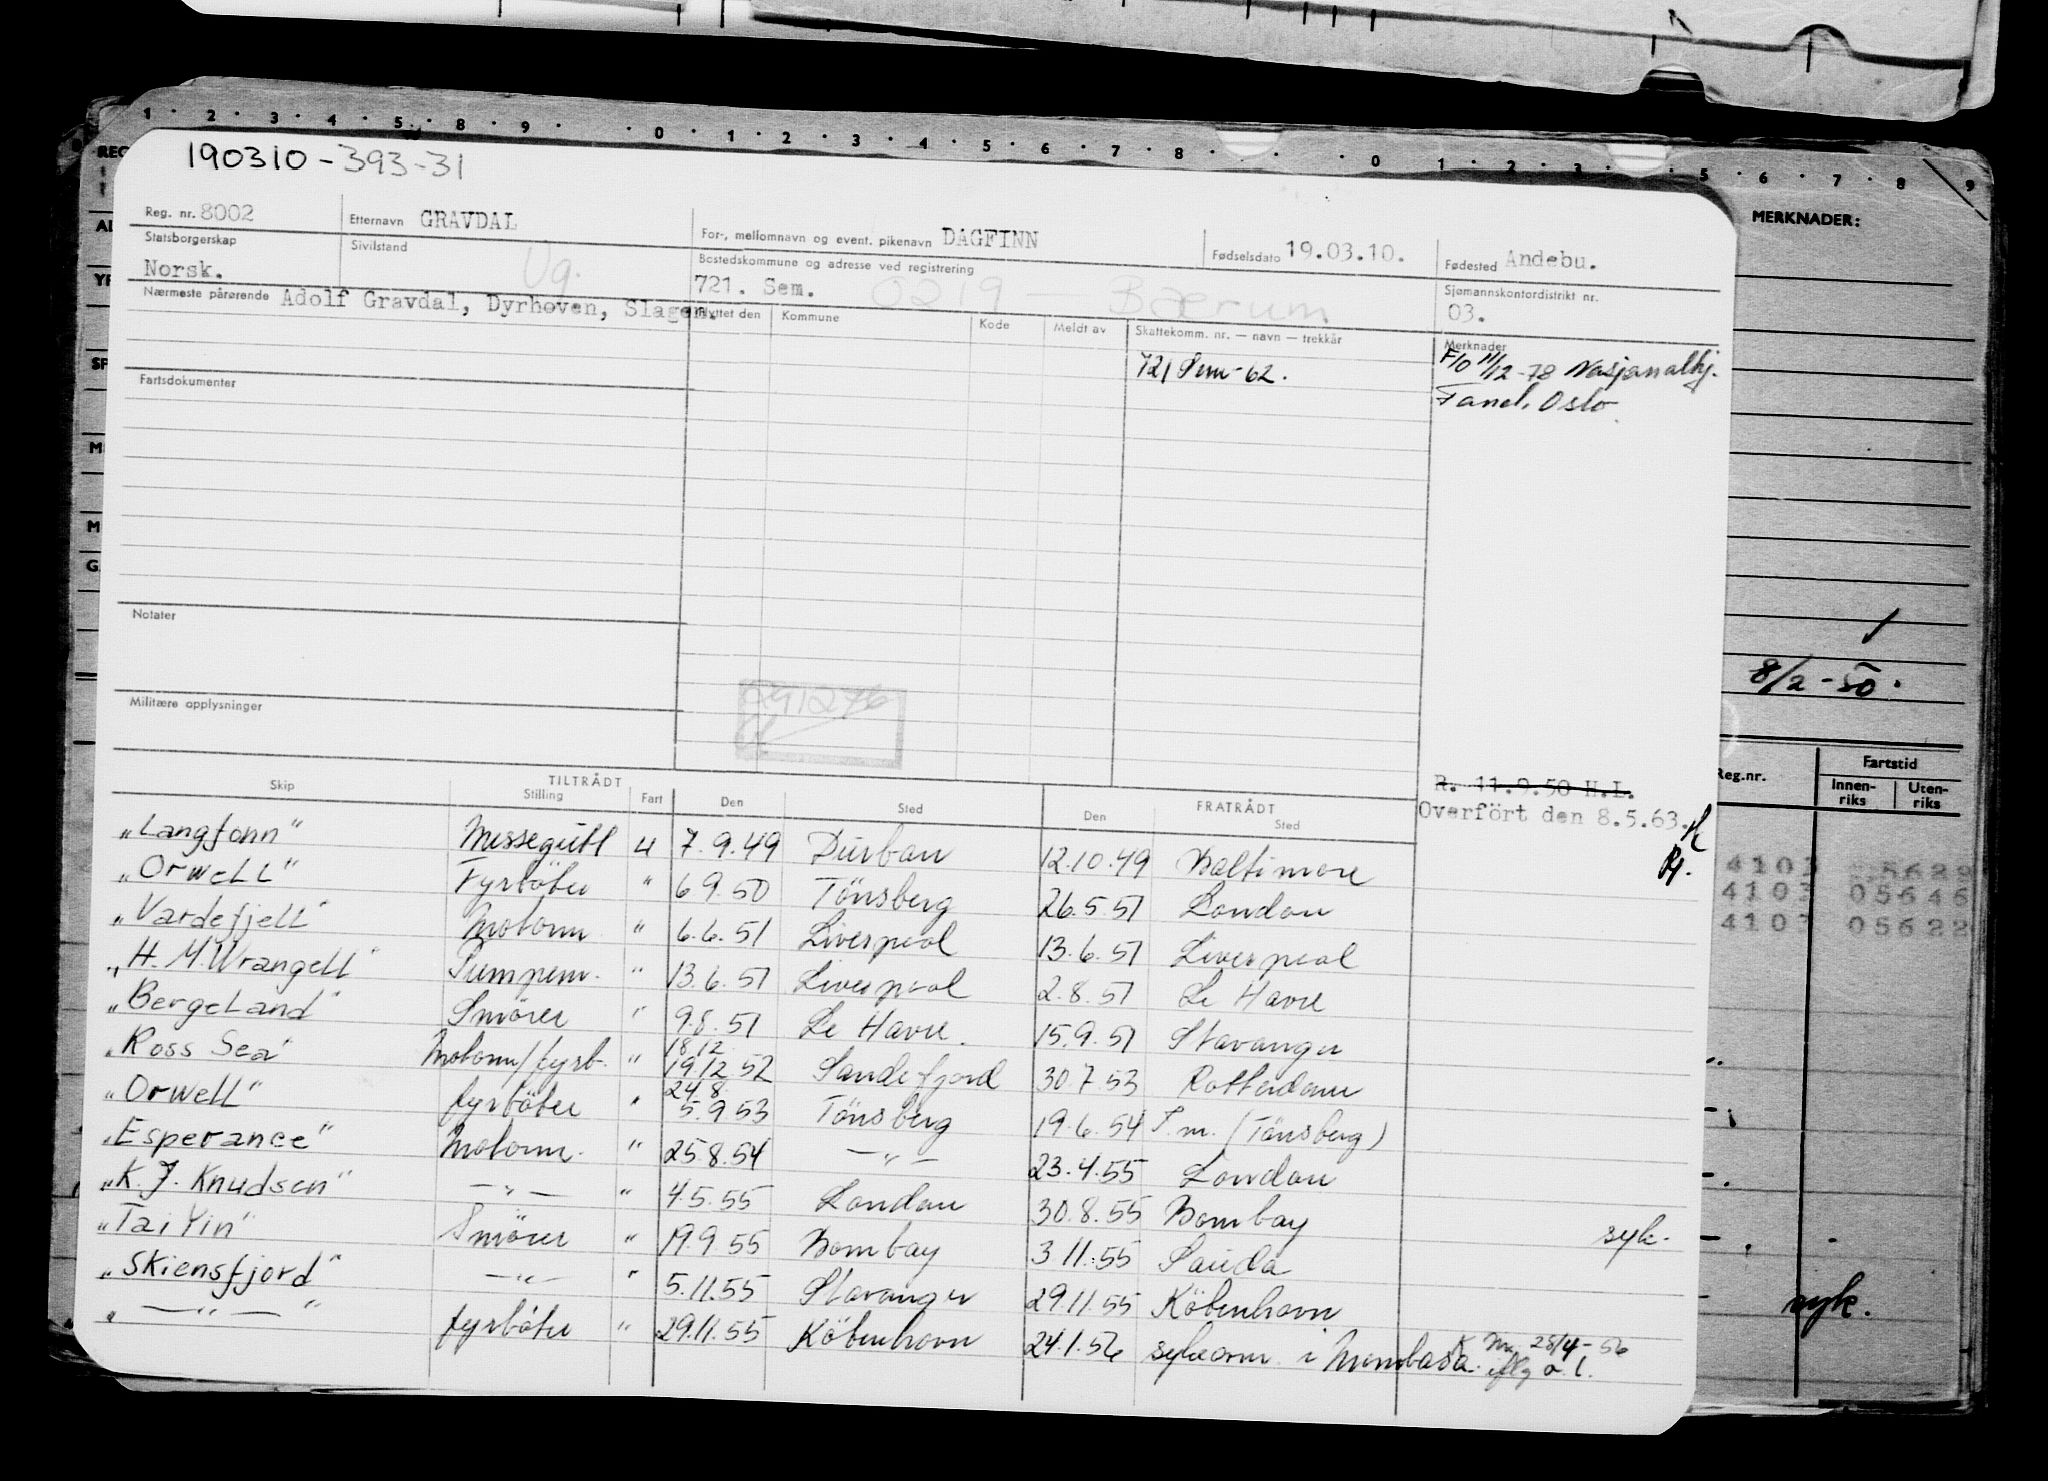 190310-393-31
Reg. nr. 8002 Etternavn GRAVDAL For-, mellomnavn og event. pikenavn DAGFINN Fødselsdato 19.03.10. Fødested Andebu.
Statsborgerskap Norsk. Sivilstand Ug. Bostedskommune og adresse ved registrering 721. Sem. 0219 - Bærum Sjømannskontordistrikt nr. 03.
Nærmeste pårørende Adolf Gravdal, Dyrhoven, Slagen. Flyttet den Kommune Kode Meldt av Skattekomm. nr. — navn — trekkår Merknader
721 Sem-62. F/O 11/12-78 Nasjonalhj.
Fartsdokumenter
Oslo
Notater
Militære opplysninger
R. 11.9.50 H.L.
Overfört den 8.5.63.
TILTRÅDT FRATRÅDT
Skip Stilling Fart Den Sted Den Sted
"Langfonn" Messegutt U 7.9.49 Durban 12.10.49 Baltimore
"Orwell" Fyrböter " 6 9.50 Tönsberg 26.5.51 London
"Vardefjell" Motorm " 6.6.51 Liverpool 13.6.51 Liverpool
"H. M. Wrangell" Pumpem. " 13.6.51 Liverpool 2.8.51 Le Havre
"Bergeland" Smörer " 9.8.51 Le Havre. 15.9.51 Stavanger
"Ross Sea" Motorm/fyrb. " 18 12 19 12.52 Sandefjord 30.7.53 Rotterdam
"Orwell" fyrböter " 24 8 5.9 53 Tönsberg 19.6.54 P.m. (Tönsberg)
"Esperance" Motorm. " 25.8.54 —"— 23.4.55 London
"K. J. Knudsen" —"— " 4.5.55 London 30.8.55 Bombay syk.
"Tai Yin" Smörer " 19.9.55 Bombay 3.11.55 Sauda
"Skiensfjord" —"— " 5.11.55 Stavanger 29.11.55 Köbenhavn
" —"— " fyrböter " 29.11.55 Köbenhavn 24.1.56 i Mombasa. 25/4-56
MERKNADER:
8/2-50.
Reg.nr. Fartstid
Innen-riks Uten-riks
4103 05629
4103 05646
4103 05622
syk.